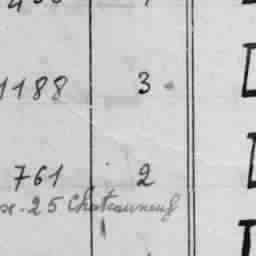 1188 3
761 2
25 Chateauneuf